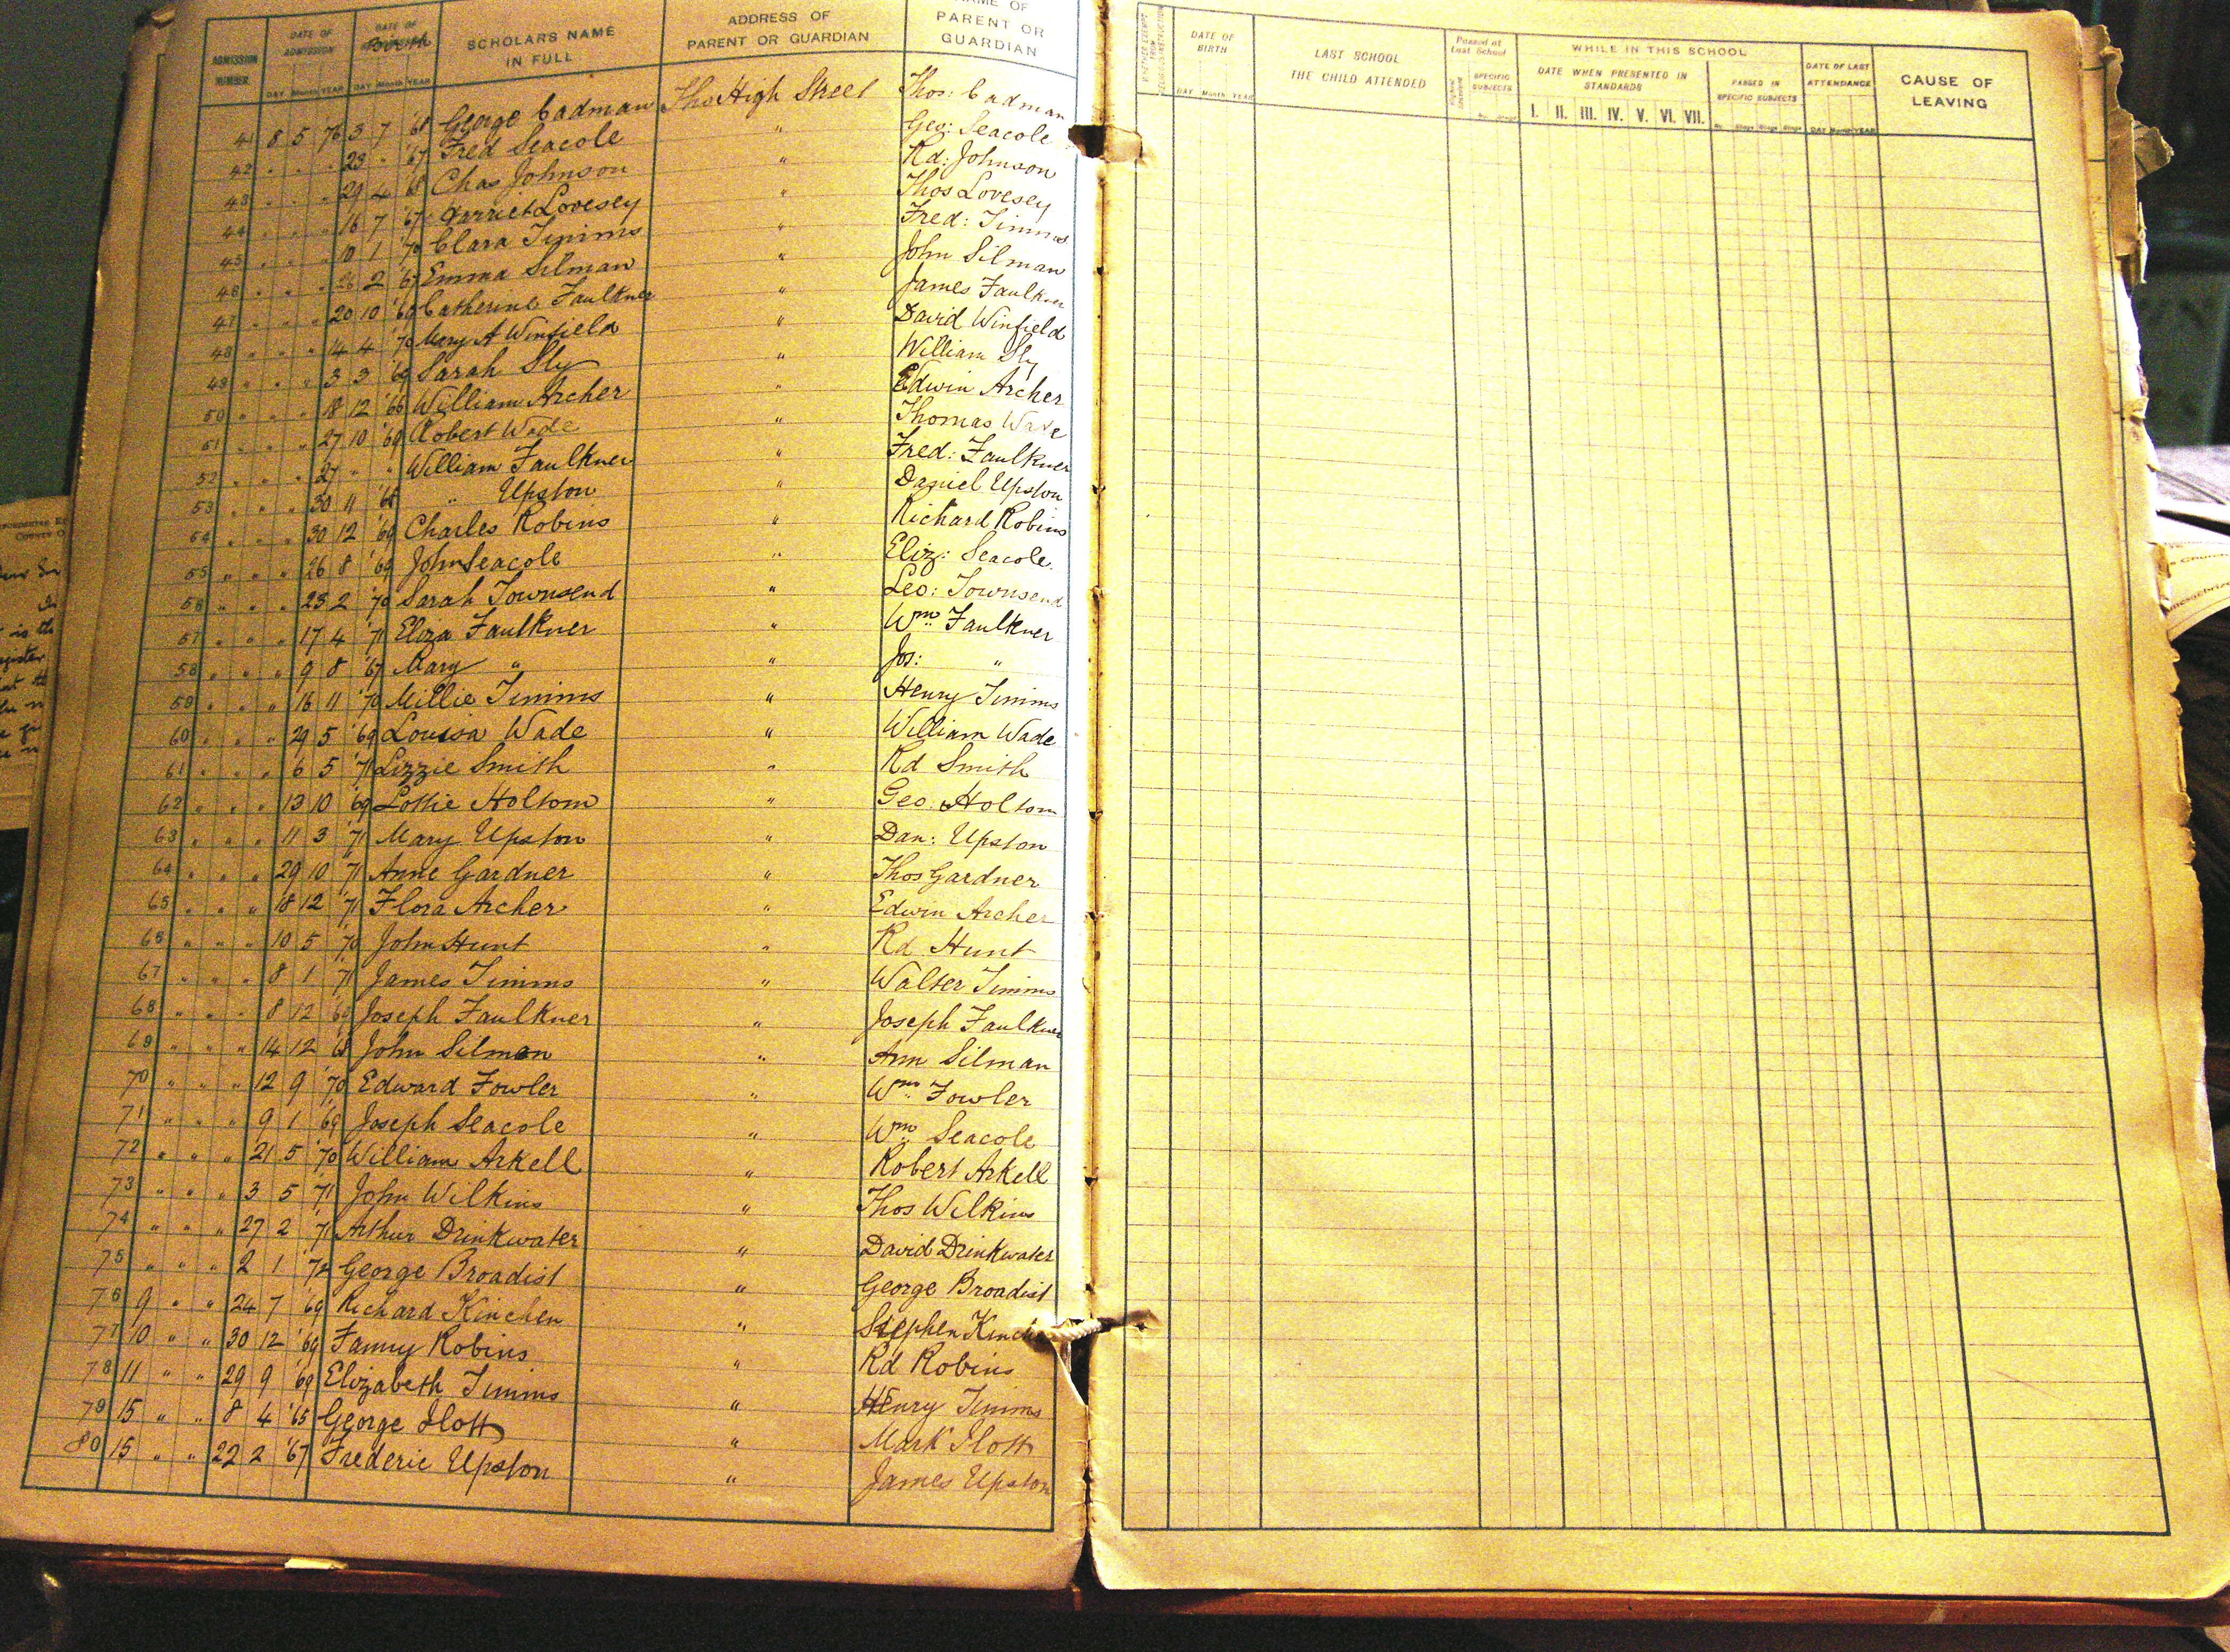 ADMISSION NUMBER DATE OF ADMISSION DATE OF Birth SCHOLARS NAME IN FULL ADDRESS OF PARENT OR GUARDIAN NAME OF PARENT OR GUARDIAN
DAY Month YEAR DAY Month YEAR
41 8 5 76 3 7 '68 George Cadman High Street Thos: Cadman
42 " " " 23 " '67 Fred Seacole " Geo: Seacole
43 " " " 29 4 '68 Chas Johnson " Rd: Johnson
44 " " " 16 7 '67 Harriet Lovesey " Thos Lovesey
45 " " " 10 1 '70 Clara Timms " Fred: Timms
46 " " " 26 2 '67 Emma Silman " John Silman
47 " " " 20 10 '69 Catherine Faulkner " James Faulkner
48 " " " 14 4 '70 Mary A Winfield " David Winfield
49 " " " 3 3 '69 Sarah Sly " William Sly
50 " " " 18 12 '66 William Archer " Edwin Archer
51 " " " 27 10 '69 Robert Wade " Thomas Wade
52 " " " 27 " " William Faulkner " Fred: Faulkner
53 " " " 30 11 '68 " Upston " Daniel Upston
54 " " " 30 12 '69 Charles Robins " Richard Robins
55 " " " 26 8 '69 John Seacole " Eliz: Seacole.
56 " " " 23 2 '70 Sarah Townsend " Geo: Townsend
57 " " " 17 4 '71 Eliza Faulkner " Wm Faulkner
58 " " " 9 8 '67 Mary " " Jos: "
59 " " " 16 11 '70 Millie Timms " Henry Timms
60 " " " 29 5 '69 Louisa Wade " William Wade
61 " " " 6 5 '71 Lizzie Smith " Rd Smith
62 " " " 13 10 '69 Lottie Holtom " Geo: Holtom
63 " " " 11 3 '71 Mary Upston " Dan: Upston
64 " " " 29 10 '71 Anne Gardner " Thos Gardner
65 " " " 18 12 '71 Flora Archer " Edwin Archer
66 " " " 10 5 '70 John Hunt " Rd Hunt
67 " " " 8 1 '71 James Timms " Walter Timms
68 " " " 8 12 '69 Joseph Faulkner " Joseph Faulkner
69 " " " 14 12 '68 John Silman " Ann Silman
70 " " " 12 9 '70 Edward Fowler " Wm Fowler
71 " " " 9 1 '69 Joseph Seacole " Wm Seacole
72 " " " 21 5 '70 William Arkell " Robert Arkell
73 " " " 3 5 '71 John Wilkins " Thos Wilkins
74 " " " 27 2 '71 Arthur Drinkwater " David Drinkwater
75 " " " 2 1 '72 George Broadist " George Broadist
76 9 " " 24 7 '69 Richard Kinchen " Stephen
77 10 " " 30 12 '69 Fanny Robins " Rd Robins
78 11 " " 29 9 '69 Elizabeth Timms " Henry Timms
79 15 " " 8 4 '65 George Ilott " Mark Ilott
80 15 " " 22 2 '67 Frederic Upston " James Upston
DATE OF BIRTH LAST SCHOOL THE CHILD ATTENDED Passed at Last School WHILE IN THIS SCHOOL DATE OF LAST ATTENDANCE CAUSE OF LEAVING
SPECIFIC SUBJECTS DATE WHEN PRESENTED IN STANDARDS PASSED IN SPECIFIC SUBJECTS
DAY Month YEAR I. II. III. IV. V. VI. VII. DAY Month YEAR